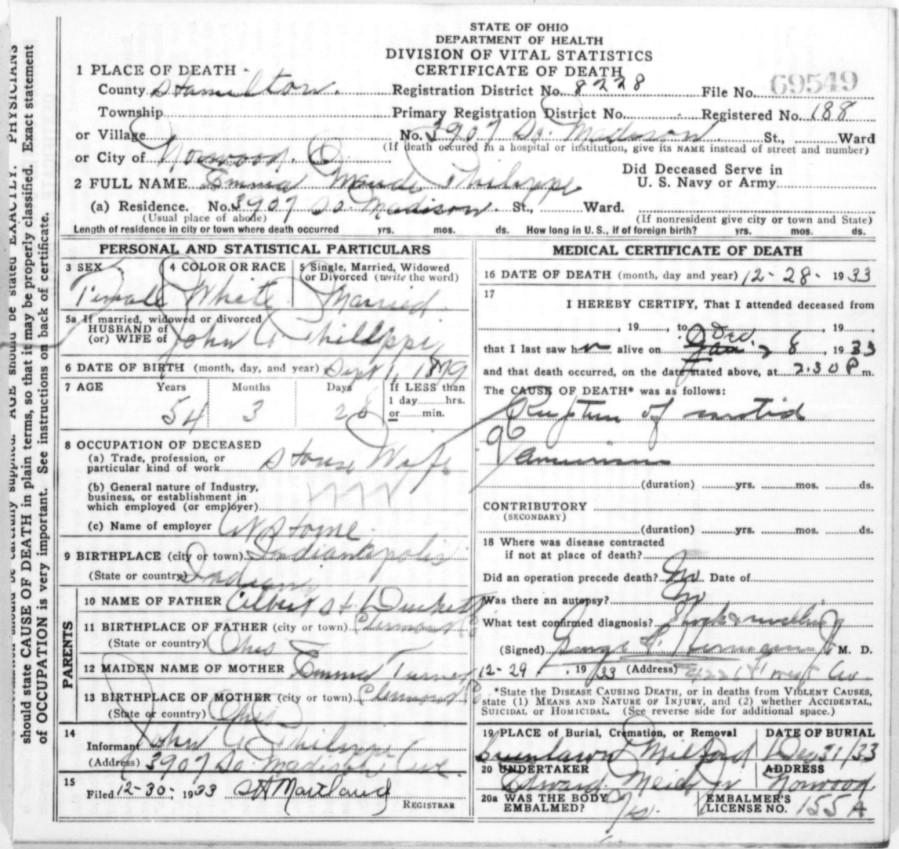 STATE OF OHIO
DEPARTMENT OF HEALTH
DIVISION OF VITAL STATISTICS
CERTIFICATE OF DEATH
1 PLACE OF DEATH
County Hamilton. Registration District No. 8228 File No. 69549
Township Primary Registration District No. Registered No. 188
or Village No. 3907 So. Madison St., Ward
(If death occured in a hospital or institution, give its NAME instead of street and number)
or City of Norwood. O
Did Deceased Serve in
U. S. Navy or Army
2 FULL NAME Emma Maude Philippi
(a) Residence. No. 3907 So Madison. St., Ward.
(Usual place of abode) (If nonresident give city or town and State)
Length of residence in city or town where death occurred yrs. mos. ds. How long in U. S., if of foreign birth? yrs. mos. ds.
PERSONAL AND STATISTICAL PARTICULARS
3 SEX 4 COLOR OR RACE 5 Single, Married, Widowed
or Divorced (write the word)
Female White Married
5a If married, widowed or divorced
HUSBAND of
(or) WIFE of John C Philippi
6 DATE OF BIRTH (month, day, and year) Sept 1, 1879
7 AGE Years Months Days If LESS than
1 day hrs.
or min.
54 3
8 OCCUPATION OF DECEASED
(a) Trade, profession, or
particular kind of work House Wife
(b) General nature of Industry,
business, or establishment in
which employed (or employer)
(c) Name of employer At Home
9 BIRTHPLACE (city or town) Indianapolis
(State or country) Indiana
PARENTS
10 NAME OF FATHER Albert H. Duckett
11 BIRTHPLACE OF FATHER (city or town) Clermont Co
(State or country) Ohio
12 MAIDEN NAME OF MOTHER Emma Turner
13 BIRTHPLACE OF MOTHER (city or town) Clermont Co
(State or country) Ohio
14
Informant John C Philippi
(Address) 3907 So Madison Ave
15
Filed 12-30-, 1933 Maitland
REGISTRAR
MEDICAL CERTIFICATE OF DEATH
16 DATE OF DEATH (month, day and year) 12-28-1933
17
I HEREBY CERTIFY, That I attended deceased from
, 19 , to , 19 ,
that I last saw her alive on Dec. 28, 1933
and that death occurred, on the date stated above, at 2:30 P m.
The CAUSE OF DEATH* was as follows:
Rupture of carotid
(duration) yrs. mos. ds.
CONTRIBUTORY
(SECONDARY)
(duration) yrs. mos. ds.
18 Where was disease contracted
if not at place of death?
Did an operation precede death? No Date of
Was there an autopsy? No
What test confirmed diagnosis?
(Signed) George M. D.
12-29, 1933 (Address)
*State the DISEASE CAUSING DEATH, or in deaths from VIOLENT CAUSES,
state (1) MEANS AND NATURE OF INJURY, and (2) whether ACCIDENTAL,
SUICIDAL or HOMICIDAL. (See reverse side for additional space.)
19 PLACE of Burial, Cremation, or Removal DATE OF BURIAL
Greenlawn Milford Dec 31/33
20 UNDERTAKER ADDRESS
Edward Norwood
20a WAS THE BODY EMBALMED? Yes. EMBALMER'S LICENSE NO. 155A
should be carefully supplied. AGE should be stated EXACTLY. PHYSICIANS
should state CAUSE OF DEATH in plain terms, so that it may be properly classified. Exact statement
of OCCUPATION is very important. See instructions on back of certificate.